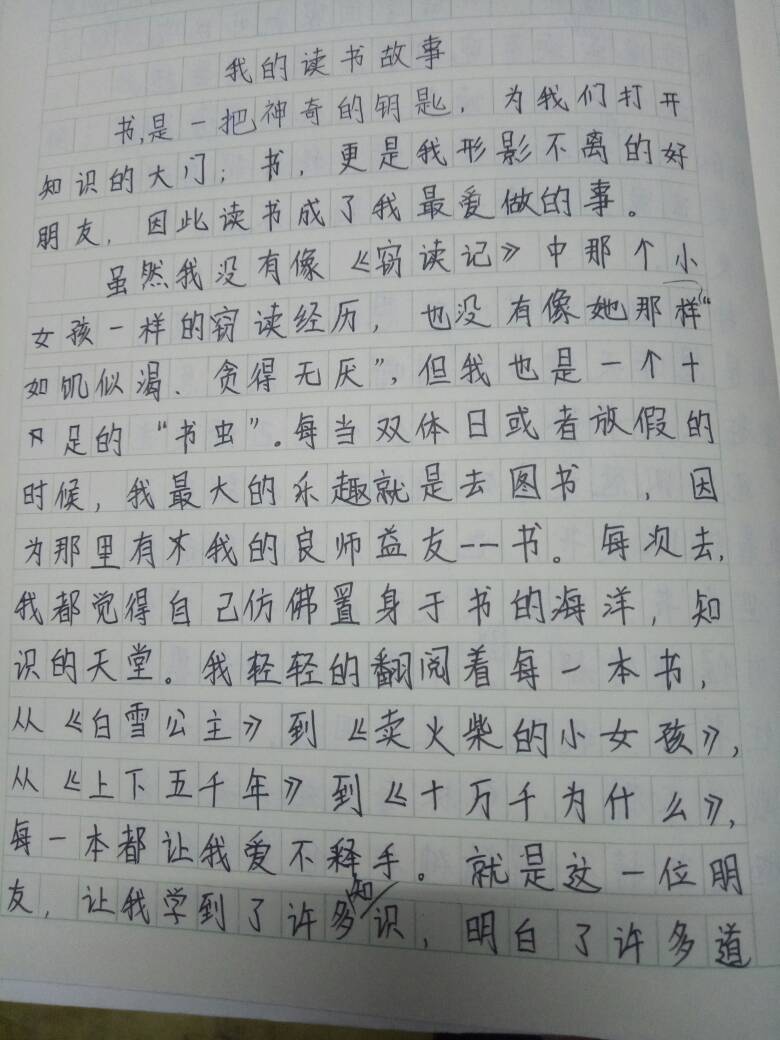 我的读书故事
书,是一把神奇的钥匙，为我们打开
知识的大门；书，更是我形影不离的好
朋友，因此读书成了我最爱做的事。
虽然我没有像《窃读记》中那个小
女孩一样的窃读经历，也没有像她那样“
如饥似渴、贪得无厌”，但我也是一个十
足的“书虫”。每当双休日或者放假的
时候，我最大的乐趣就是去图书 ，因
为那里有我的良师益友——书。每次去，
我都觉得自己仿佛置身于书的海洋，知
识的天堂。我轻轻的翻阅着每一本书，
从《白雪公主》到《卖火柴的小女孩》，
从《上下五千年》到《十万千为什么》，
每一本都让我爱不释手。就是这一位朋
友，让我学到了许多知识，明白了许多道